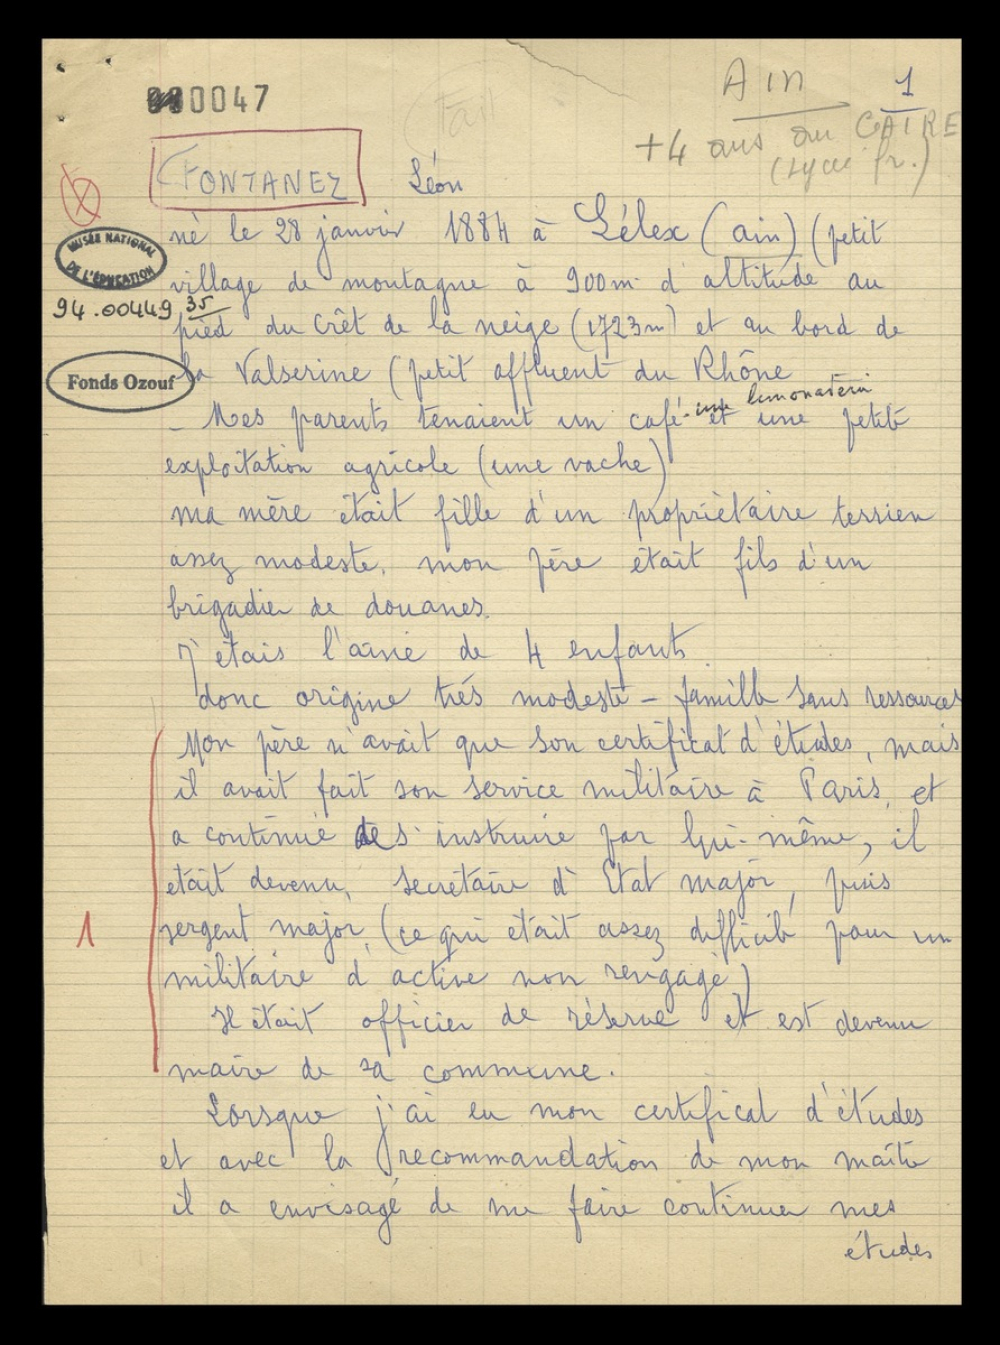 000047
Fait
Ain
1
+4 ans au CAIRE
(Lycée fr.)
FONTANEZ Léon
né le 28 janvier 1884 à Lélex (ain) (petit
MUSÉE NATIONAL
DE L'ÉDUCATION
village de montagne à 900m d'altitude au
94.00449 35
pied du Crêt de la neige (1723m) et au bord de
Fonds Ozouf
la Valserine (petit affluent du Rhône
- une limonaderie
- Mes parents tenaient un café et une petite
exploitation agricole (une vache)
ma mère était fille d'un propriètaire terrien
assez modeste. mon père était fils d'un
brigadier de douanes.
J'étais l'ainé de 4 enfants
donc origine très modeste - famille sans ressources
Mon père n'avait que son certificat d'études, mais
il avait fait son service militaire à Paris, et
a continué de s'instruire par lui-même, il
était devenu, secrétaire d'Etat major, puis
1
sergent major, (ce qui était assez difficile pour un
militaire d'active non rengagé)
Il était officier de réserve et est devenu
maire de sa commune.
Lorsque j'ai eu mon certificat d'études
et avec la recommandation de mon maître
il a envisagé de me faire continuer mes
études